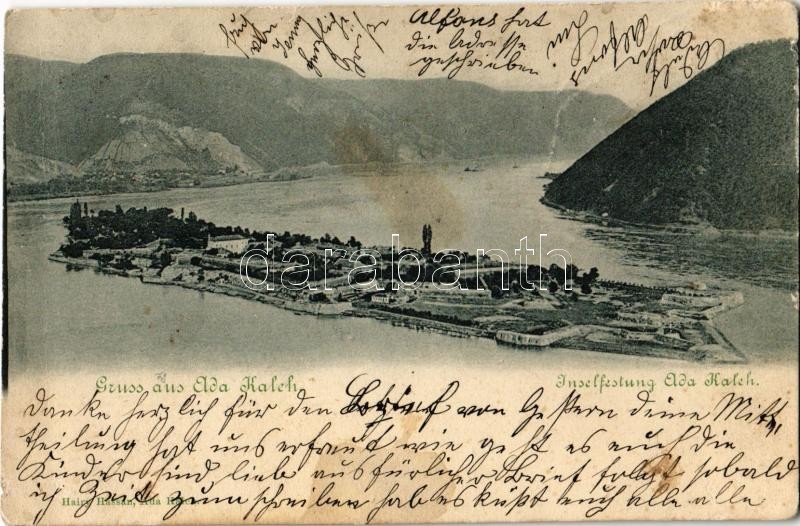 Alfons hat
die Adresse
geschrieben
darabanth
Gruss aus Ada Kaleh.
Inselfestung Ada Kaleh.
Danke herzlich für den Brief von Gestern deine Mitt,
theilung hat uns erfreut wie geht es euch die
Kinder sind lieb ausfürlicher Brief folgt sobald
ich Zeit zum schreiben hab es küßt euch alle alle
Hairy Hassan, Ada Kaleh.